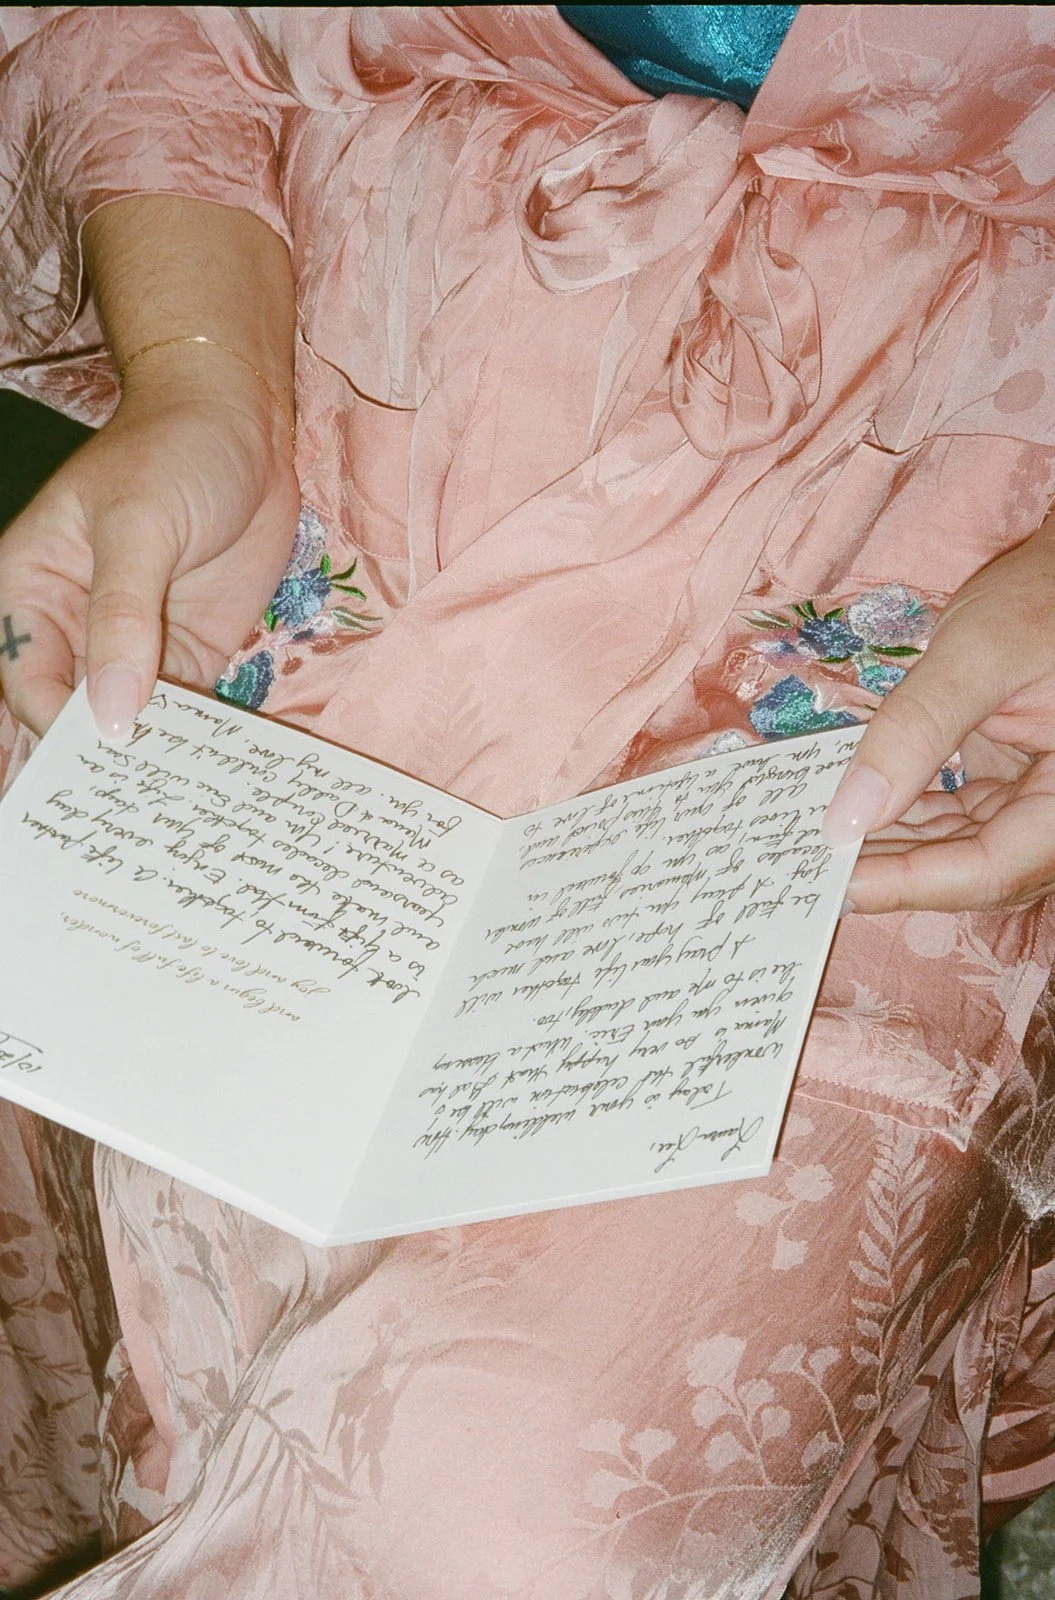 Lauren Lee,
Today is your wedding day. How
wonderful the celebration will be!
Mama is so very happy that God has
given you your Eric. What a blessing
he is to me and daddy, too.
I pray your life together will
be full of hope, love and much
joy. I pray you two will have
decades of memories, full of wonder
and fun, as you go forward in
lives together.
All of our life experiences
brought you to this point and
you have a lifetime of love to
10/2
and begin a life full of wonder,
joy and love to last forevermore
look forward to together. A life partner
is a gift from God. Enjoy every day
and make the most of your days,
years and decades together. Life is an
adventure! You and Eric will soar
as a Married Couple.
Mama & Daddy couldn't be
for you. All my love, Mama ♡